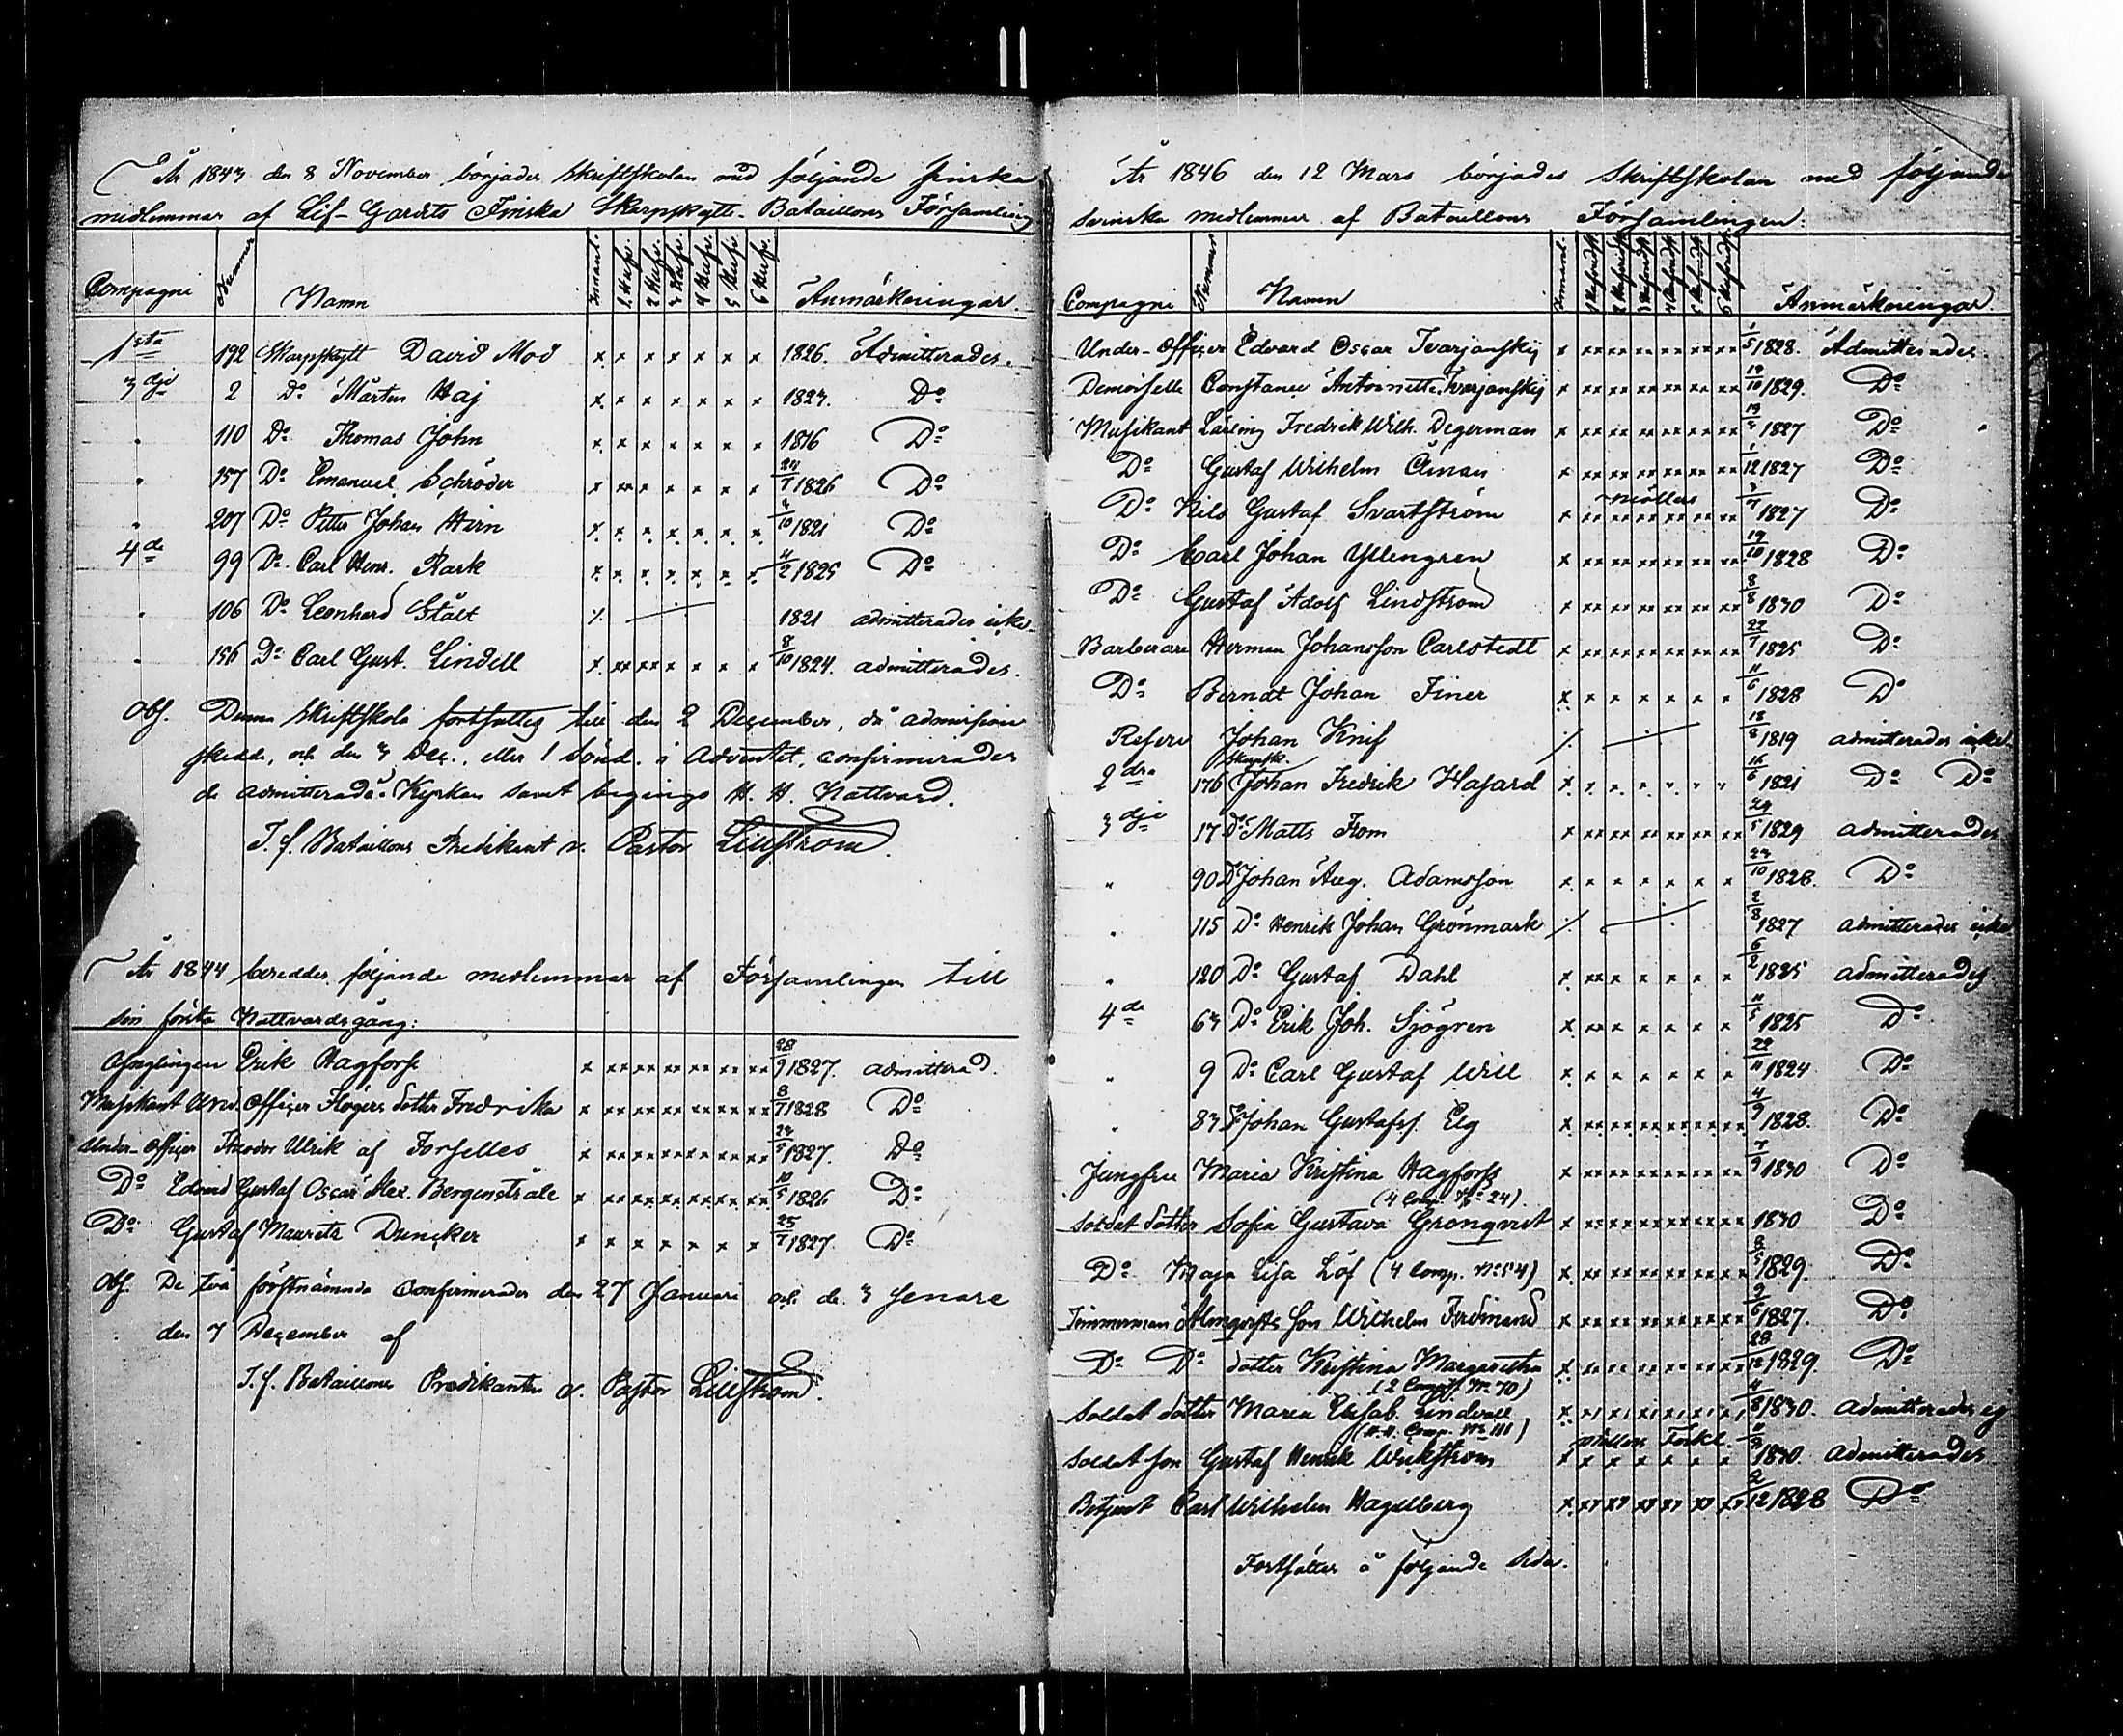 År 1843 den 8 November börjades Skriftskolan med följande finska
medlemmar af Lif-Gardets Finska Skarpskytte-Bataillons Församling
Compagni Nummer Namn Innant. 1 Hufv. 2 Hufv. 3 Hufv. 4 Hufv. 5 Hufv. 6 Hufv. Anmärkningar.
1sta 192 Skarpskytt David Mod x x x x x x x 1826. Admitterades.
3dje 2 Do Mårten Haj x x x x x x x 1823. Do
" 110 Do Thomas John x x x x x x x 1816 Do
" 157 Do Emanuel Schröder x xx x x x x x 24/7 1826 Do
" 207 Do Petter Johan Hirn x x x x x x x 4/10 1821 Do
4de 99 Do Carl Henr. Rask x x x x x x x 4/2 1825 Do
" 106 Do Leonhard Stålt 1821 admitterades icke
" 156 Do Carl Gust. Lindell x xx xx x x x x 8/10 1824. admitterades.
Obs. Denna Skriftskola fortsattes till den 2 December, då admission
skedde, och den 3 Dec., eller 1 Sönd. i Adventet, confirmerades
de admitterade i Kyrkan samt begingo H. H. Nattvard.
T. f. Bataillons Predikant v. Pastor Lillström.
År 1844 bereddes följande medlemmar af Församlingen till
sin första Nattvardsgång:
Ynglingen Erik Hagfors x xx xx xx xx xx xx 28/9 1827. admitterad.
Musikant Und. Officer Flögers dotter Fredrika x xx xx xx xx xx xx 8/7 1828 Do
Under-Officer Theodor Ulrik af Forselles x xx xx xx xx xx xx 24/5 1827. Do
Do Edvard Gustaf Oscar Alex. Bergenstråle x xx xx xx xx xx xx 10/5 1826 Do
Do Gustaf Mauritz Duncker x x x x x x x 25/7 1827. Do
Obs. De två förstnämnda confirmerades den 27 Januari och de 3 senare
den 7 December af
T. f. Bataillons Predikanten v. Pastor Lillström.
År 1846 den 12 Mars börjades Skriftskolan med följande
svenska medlemmar af Bataillons Församlingen:
Compagni Nummer Namn Innant. 1 Hufvudst. 2 Hufvudst. 3 Hufvudst. 4 Hufvudst. 5 Hufvudst. 6 Hufvudst. Anmärkningar.
Under-Officer Edvard Oscar Tvarjanskij x xx xx xx xx xx xx 1/5 1828. Admitterades.
Demoiselle Constance Antoinette Tvarjanskij x xx xx xx xx xx xx 19/10 1829. Do
Musikant Lärling Fredrik Wilh. Degerman x xx xx xx xx xx xx 1827 Do
Do Gustaf Wilhelm x xx xx xx xx xx xx 1/12 1827 Do
Do Nils Gustaf Svartström x xx xx xx xx xx xx möllers 1827 Do
Do Carl Johan Yllengren x xx xx xx xx xx xx 19/10 1828 Do
Do Gustaf Adolf Lindström x xx xx xx xx xx xx 8/8 1830 Do
Barberare Herman Johansson Carlstedt x xx xx xx xx xx xx 22/7 1825 Do
Do Berndt Johan Finer x x x x x x x 11/6 1828 Do
Reserv Johan Knif 18/8 1819 admitterades icke
2dra 176 Skarpsk. Johan Fredrik Hasard x x x x x x x 16/6 1821 Do Do
3dje 17 Do Matts From x xx xx xx xx xx xx 29/5 1829 admitterades
" 90 Do Johan Aug. Adamsson x x x x x x x 23/10 1828. Do
" 115 Do Henrik Johan Grönmark 2/8 1827 admitterades icke
" 120 Do Gustaf Dahl x xx x x x x x 6/2 1825 admitterades
4de 63 Do Erik Joh. Sjögren x xx x x x x x 11/5 1825 Do
" 9 Do Carl Gustaf Will x x x x x x x 22/11 1824 Do
" 83 Do Johan Gustafss. Elg x xx xx xx xx xx xx 4/9 1828. Do
Jungfru Maria Kristina Hagfors x xx xx xx xx xx xx 7/9 1830 Do
(4 Comp. No 24)
Soldat dotter Sofia Gustava Grönqvist x xx xx xx xx xx xx 1830 Do
Do Maja Lisa Löf (4 Comp. No 54) x xx xx xx xx xx xx 8/5 1829. Do
Timmerman Almqvists son Wilhelm Ferdinand x xx xx xx xx xx xx 9/6 1827. Do
Do Do dotter Kristina Margaretha x xx xx xx xx xx xx 28/12 1829. Do
(2 Comp. No 70)
Soldat dotter Maria Elisab. Lindvall 4/8 1830. admitterades ej
(4 Comp. No 111)
Soldat son Gustaf Henrik Wickström x x x x x x x möllers Förkl. 1830. admitterades
Betjent Carl Wilhelm Hagelberg 2/12 1828 Do
Fortsättes å följande sida.